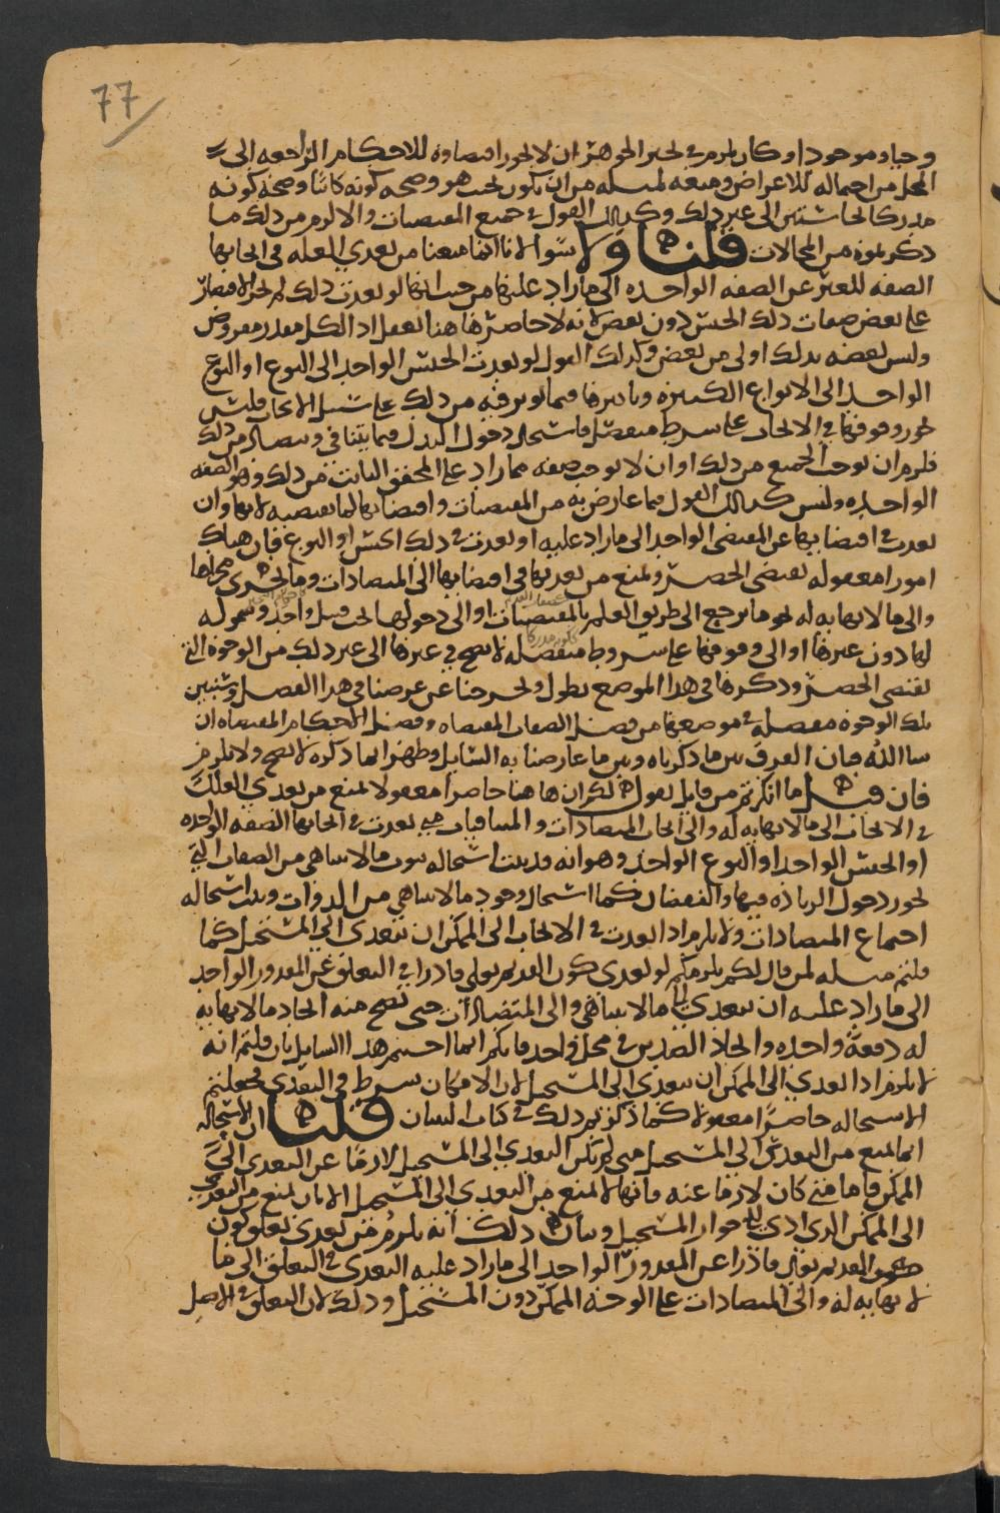 77
وحيا وموجودا وكان يلزم في تحيز الجوهر ان لا يجوز اقتضاوه للاحكام الراجعه الى
المحل من احتماله للاعراض ومنعه لمثله من ان يكون بحيث هو وصحه كونه كائنا وصحه كونه
مدركا بحاستين الى غير ذلك وكذلك القول في جميع المقتضيات والا لزم من ذلك ما
ذكرتموه من المحالات قلنا ولا سوا لانا انما منعنا من تعدي العله في ايجابها
الصفه للغير عن الصفه الواحده الى ما زاد عليها من حيث انها لو تعدت ذلك لم يجز الاقتصار
على بعض صفات ذلك الجنس دون بعض لانه لا حاصر ها هنا يعقل اذ الكل مقدر مفروض
وليس بعضه بذلك اولى من بعض وكذلك القول لو تعدت الجنس الواحد الى النوع او النوع
الواحد الى الانواع الكثيره وتاثيرها فيما توثر فيه من ذلك على سبيل الايجاب فليس
يجوز وقوفها في الايجاب على شرط منفصل فاستحال دخول البدل فيما يتنافى ويتضاد من ذلك
فلزم ان توجب الجميع من ذلك او ان لا توجب صفه مما زاد على المحقق الثابت من ذلك وهو الصفه
الواحده وليس كذلك القول فيما عارض به من المقتضيات واقتضائها لما تقتضيه لانها وان
تعدت في اقتضائها عن المقتضى الواحد الى ما زاد عليه او تعدت في ذلك الجنس او النوع فان هناك
امورا معقوله تقتضي الحصر وتمنع من تعديها في اقتضائها الى المتضادات وما يجري مجراها
والى ما لا نهايه له نحو ما يرجع الى طريق العلم بالمقتضيات او الى دخولها تحت قبيل واحد وشموله
لها دون غيرها او الى وقوفها على شروط منفصله لا تصح في غيرها الى غير ذلك من الوجوه التي
تقتضي الحصر وذكرها في هذا الموضع يطول ويخرجنا عن غرضنا في هذا الفصل وسنبين
تلك الوجوه مفصله في موضعها من فصل الصفات المقتضاه وفصل الاحكام المقتضاه ان
شا الله فبان الفرق بين ما ذكرناه وبين ما عارضنا به السايل وظهر انما ذكره لا يصح ولا يلزم
فان قيل ما انكرتم من قايل يقول لكم ان ها هنا حاصرا معقولا يمنع من تعدي العلل
في الايجاب الى ما لا نهايه له والى ايجاب المتضادات والمتنافيات متى تعدت في ايجابها الصفه الواحده
او الجنس الواحد او النوع الواحد وهو انه قد ثبت استحاله ثبوت ما لا يتناهى من الصفات التي
يجوز دخول الزياده فيها والنقصان كما استحال وجود ما لا يتناهى من الذوات وثبت استحاله
اجتماع المتضادات ولا يلزم اذا تعدت في الايجاب الى الممكن ان تتعدى الى المستحيل كما
قلتم مثله لمن قال لكم يلزمكم لو تعدى كون القديم تعالى قادرا في التعلق عن المقدور الواحد
الى ما زاد عليه ان يتعدى الى ما لا يتناهى والى المتضادات حتى يصح منه ايجاد ما لا نهايه
له دفعة واحده وايجاد الضدين في محل واحد فانكم انما اجبتم هذا السايل بان قلتم انه
لا يلزم اذا تعدى الى الممكن ان يتعدى الى المستحيل لان الامكان شرط في التعدي فجعلتم
الاستحاله حاصرا معقولا كما ذكرتم ذلك في كتاب البيان قلنا ان الاستحاله
انما تمنع من التعدي الى المستحيل متى لم يكن التعدي الى المستحيل لازما عن التعدي الى
الممكن فاما متى كان لازما عنه فانها لا تمنع من التعدي الى المستحيل الا بان تمنع من التعدي
الى الممكن الذي ادى الى جواز المستحيل وبيان ذلك انه يلزم من تعدي تعلق كون
القديم تعالى قادرا عن المقدور الواحد الى ما زاد عليه التعدي في التعلق الى ما
لا نهايه له والى المتضادات على الوجه الممكن دون المستحيل وذلك لان التعلق في الاصل